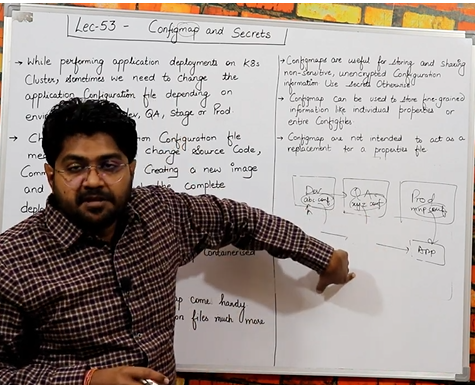 Lec-53 - Configmap and Secrets
→ While performing application deployments on K8s
Cluster, Sometimes we need to change the
application Configuration file depending on
QA, Stage or Prod.
Configuration file
change Source Code,
Creating a new image
and complete
Containerised
come handy
files much more
→ Configmaps are useful for storing and sharing
non-sensitive, unencrypted Configuration
information Use Secrets Otherwise
→ Configmap can be used to store fine-grained
information like individual properties or
entire Configfiles
→ Configmap are not intended to act as a
replacement for a properties file.
Dev
abc conf
Q A
xyz conf
Prod
conf
App